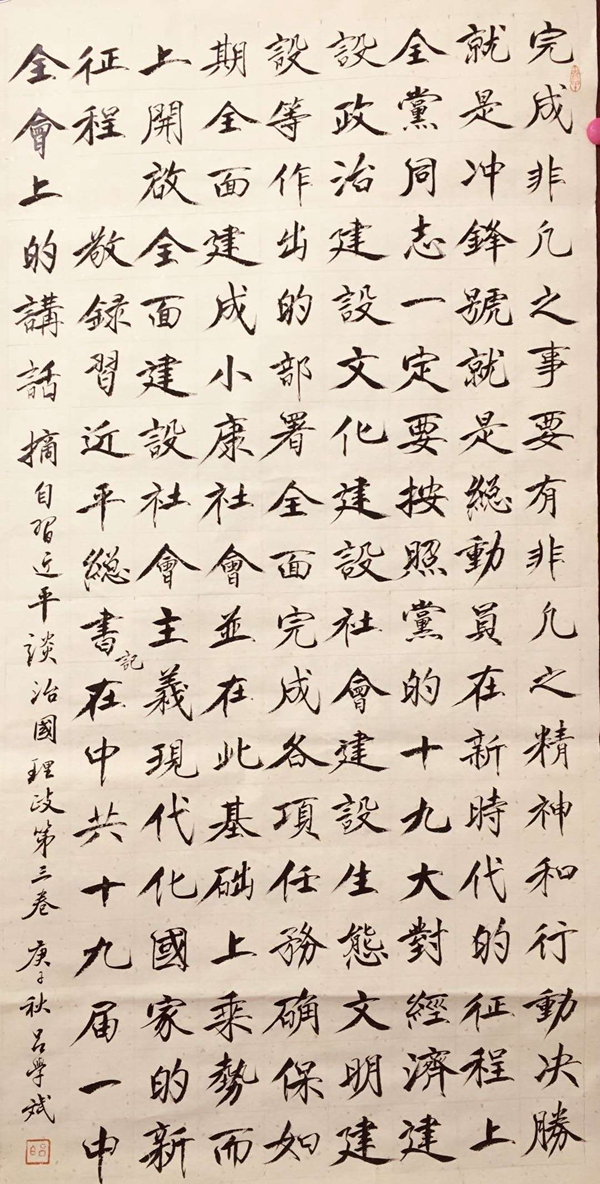 完成非凡之事要有非凡之精神和行動决勝
就是冲鋒號就是總動員在新時代的征程上
全黨同志一定要按照黨的十九大對經濟建
設政治建設文化建設社會建設生態文明建
設等作出的部署全面完成各項任務确保如
期全面建成小康社會並在此基础上乘勢而
上開放全面建設社會主義現代化國家的新
征程 敬録習近平總書記在中共十九届一中
全會上的講話 摘自習近平談治國理政第三卷 庚子秋 吕學斌